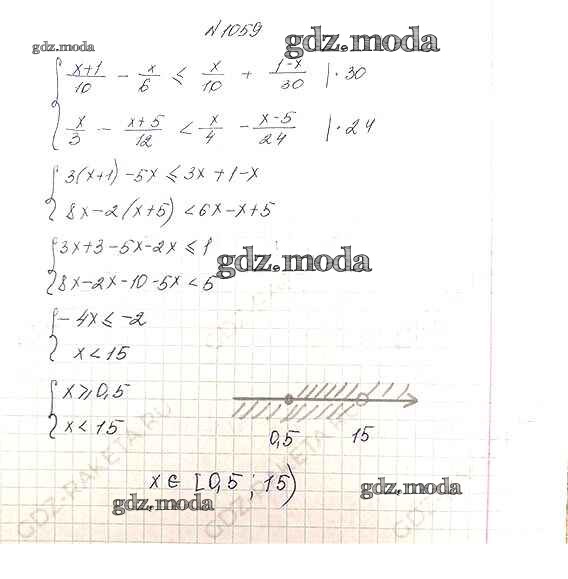 №1059
gdz.moda
gdz.moda
{ (x+1)/10 - x/6 ≤ x/10 + (1-x)/30 |·30
x/3 - (x+5)/12 < x/4 - (x-5)/24 |·24
{ 3(x+1) - 5x ≤ 3x + 1 - x
8x - 2(x+5) < 6x - x + 5
{ 3x + 3 - 5x - 2x ≤ 1
gdz.moda
8x - 2x - 10 - 5x < 5
{ - 4x ≤ -2
x < 15
{ x ≥ 0,5
x < 15
0,5 15
x ∈ [0,5 ; 15)
gdz.moda
gdz.moda
GDZ-RAKETA.RU